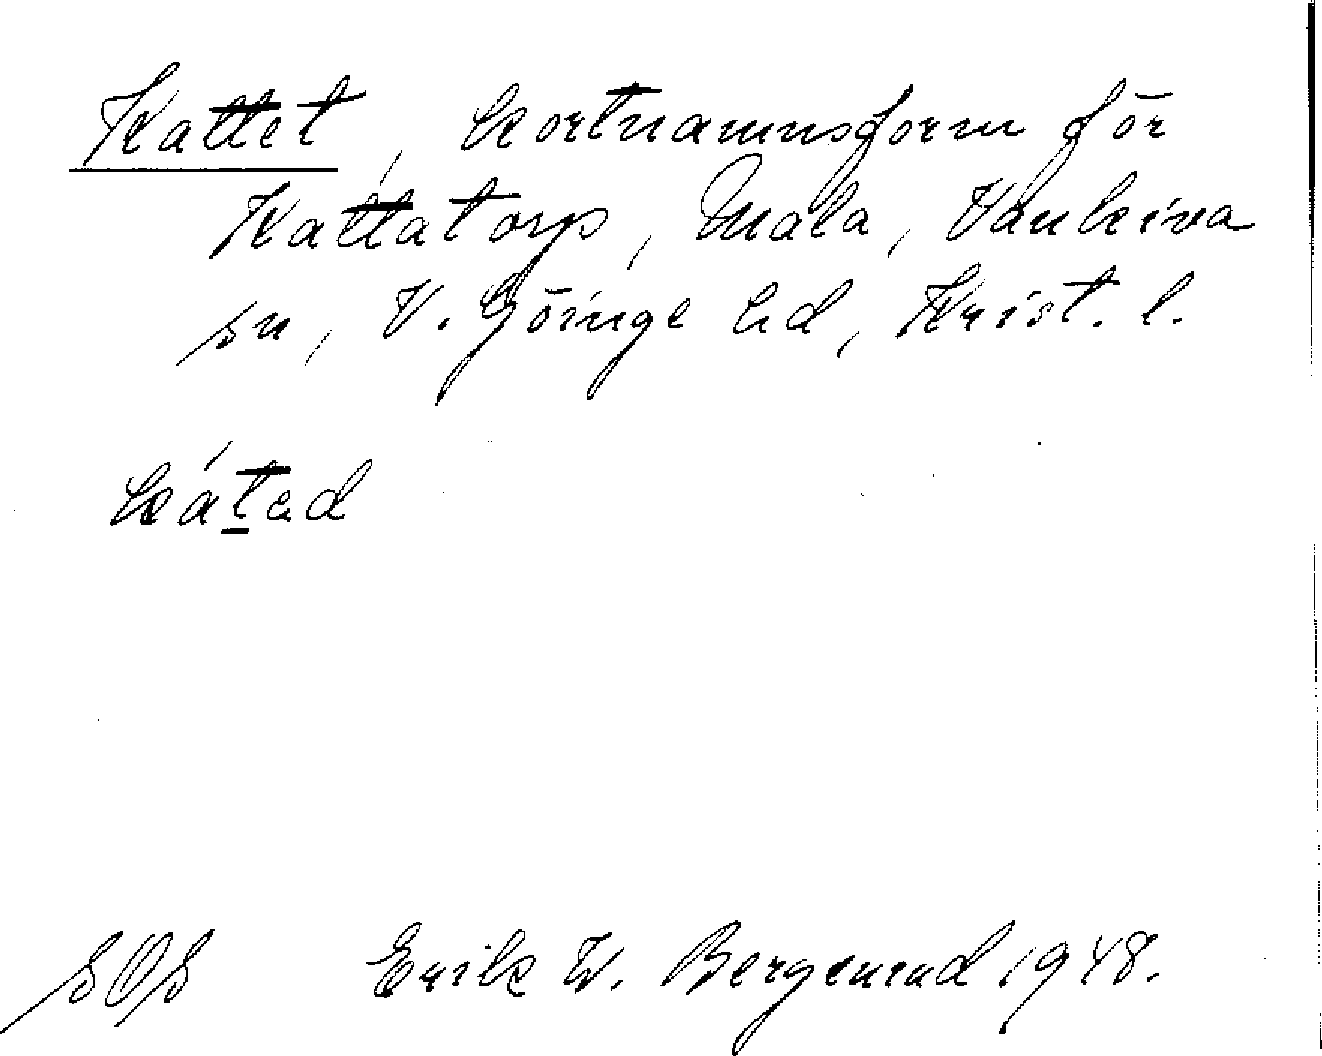 Kattet, kortnamnsform för
Kattatorp, Mala, Vankiva
sn, V. Göinge hd, Krist. l.
kátəd
SOS Erik W. Bergenrud 1948.